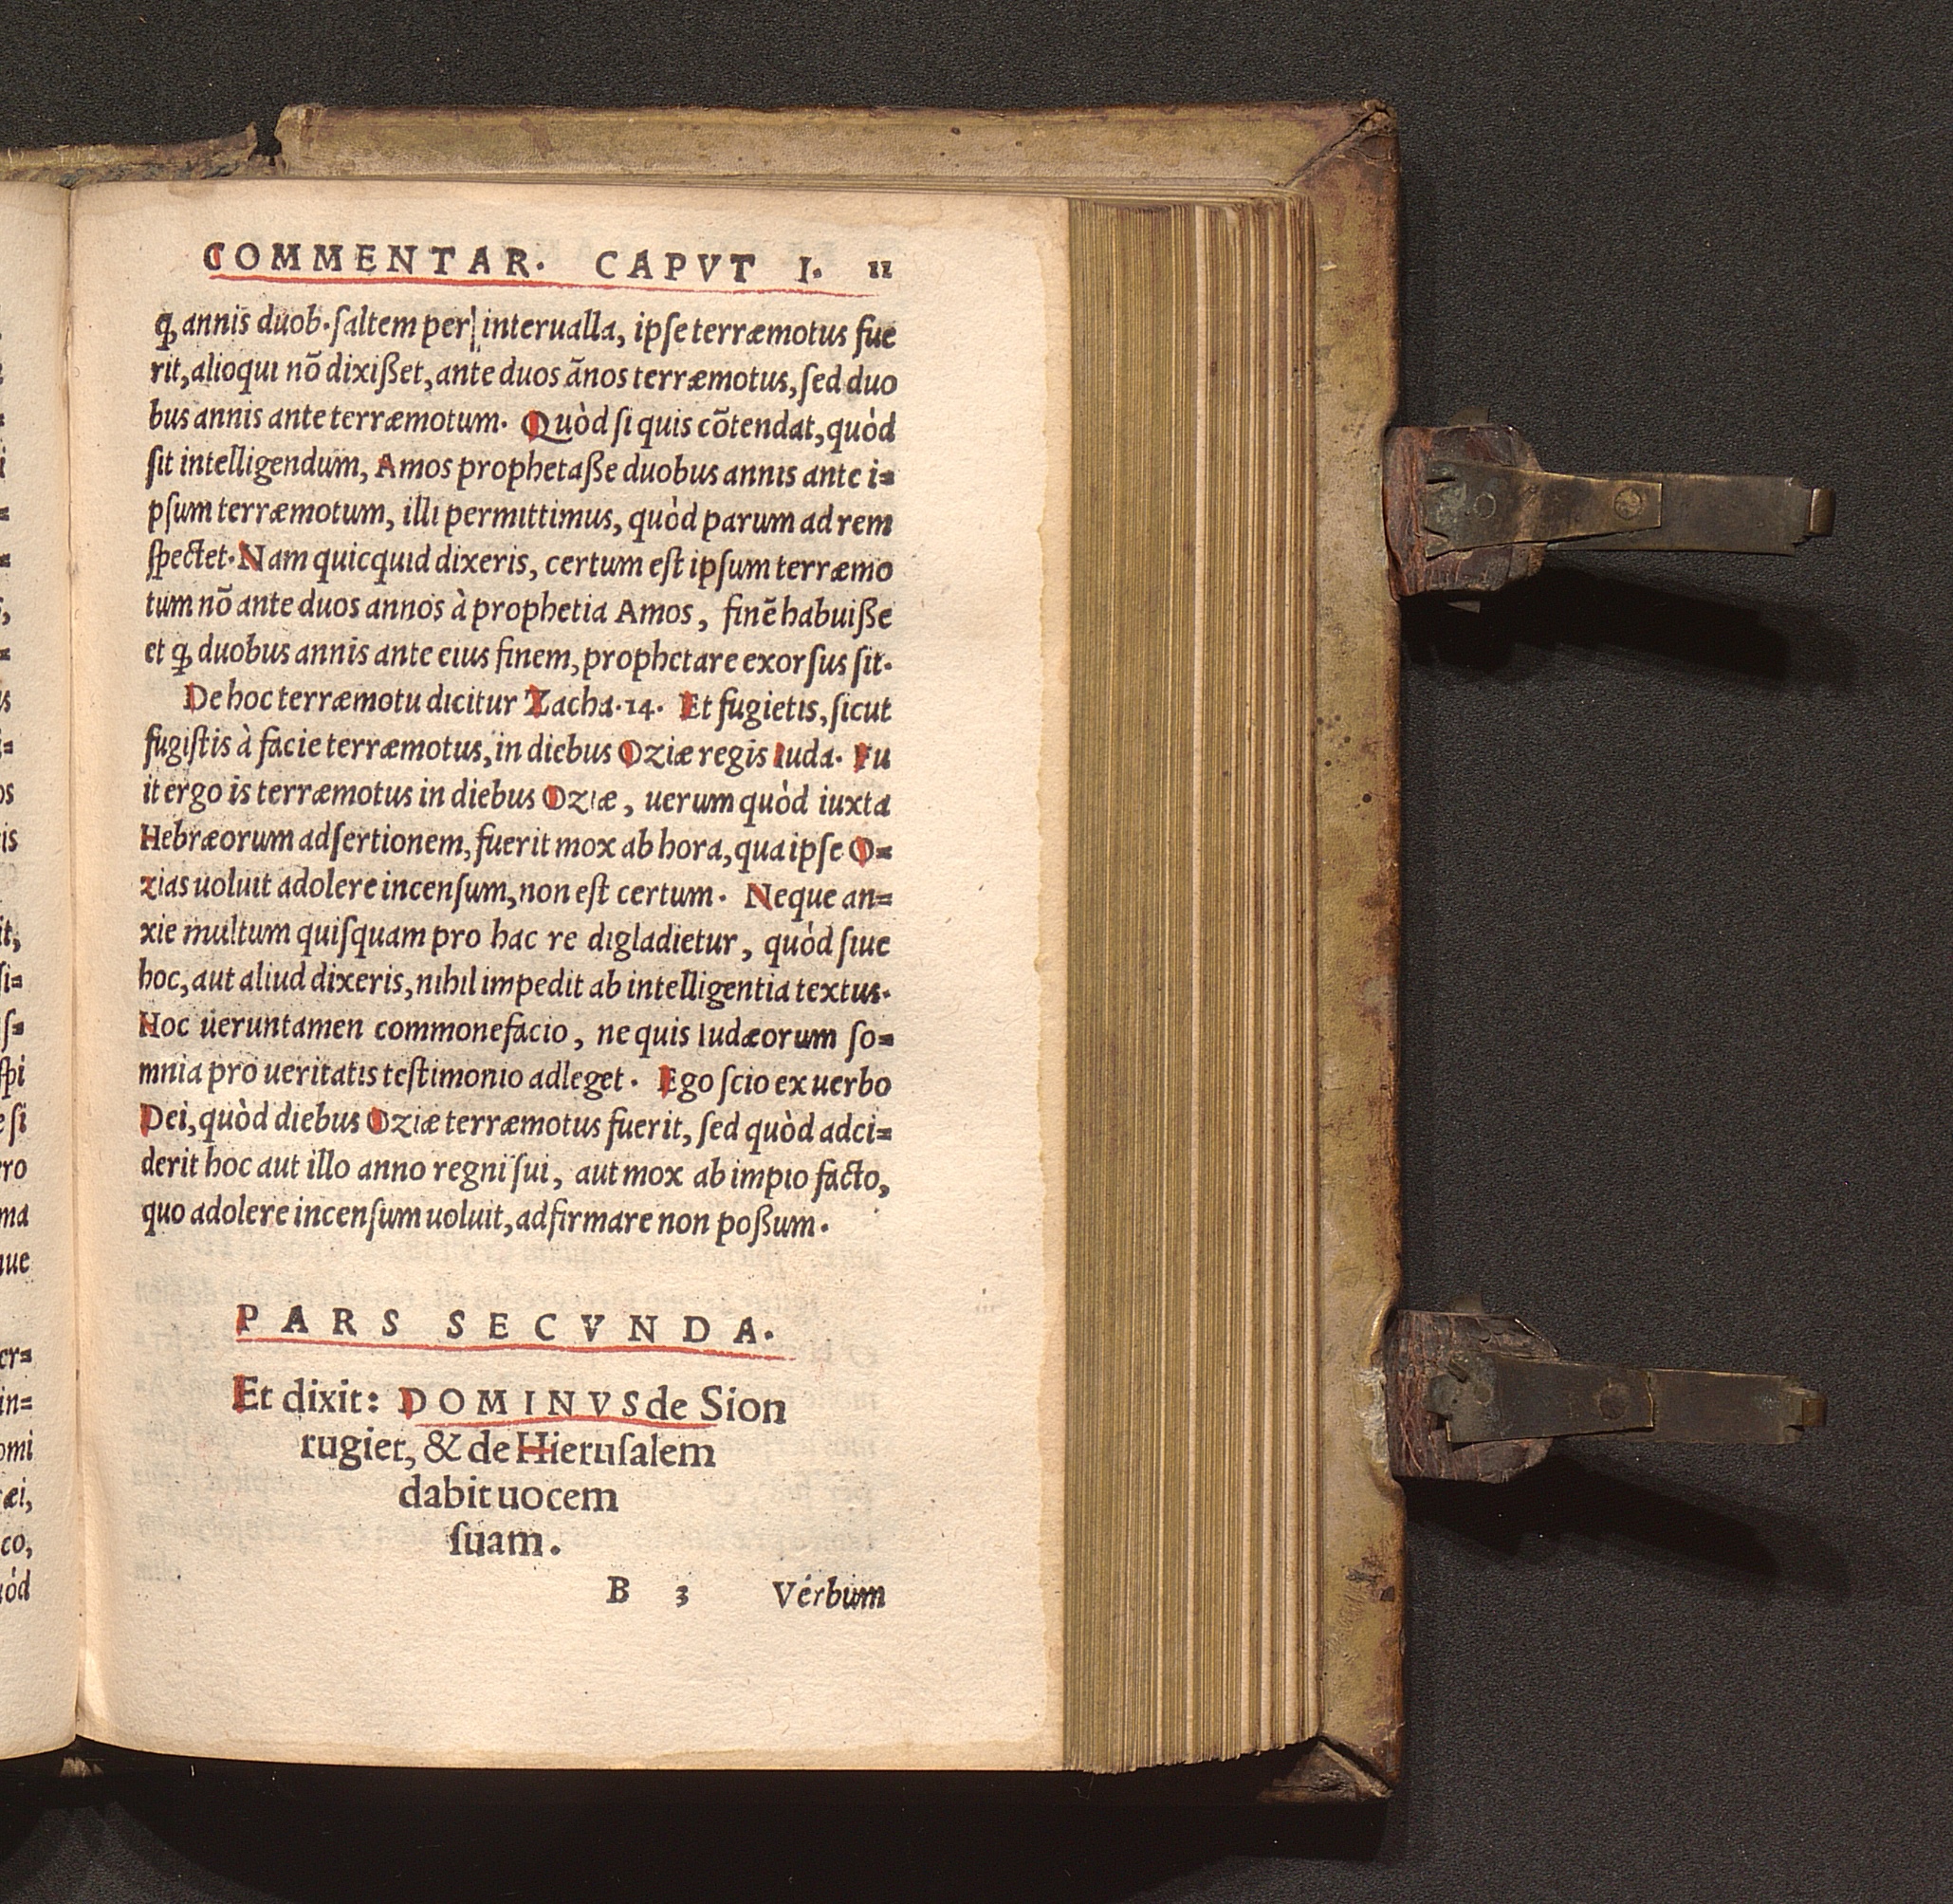 COMMENTAR. CAPVT I. 11
ꝙ annis duob. ſaltem per interualla, ipſe terræmotus fue
rit, alioqui nõ dixißet, ante duos ãnos terræmotus, ſed duo
bus annis ante terræmotum. Quòd ſi quis cõtendat, quòd
ſit intelligendum, Amos prophetaße duobus annis ante i=
pſum terræmotum, illi permittimus, quòd parum ad rem
ſpectet. Nam quicquid dixeris, certum eſt ipſum terræmo
tum nõ ante duos annos à prophetia Amos, finẽ habuiße
et ꝙ duobus annis ante eius finem, prophetare exorſus ſit.
De hoc terræmotu dicitur Zacha. 14. Et fugietis, ſicut
fugiſtis à facie terræmotus, in diebus Oziæ regis Iuda. Fu
it ergo is terræmotus in diebus Oziæ, uerum quòd iuxta
Hebræorum adſertionem, fuerit mox ab hora, qua ipſe O=
zias uoluit adolere incenſum, non eſt certum. Neque an=
xie multum quiſquam pro hac re digladietur, quòd ſiue
hoc, aut aliud dixeris, nihil impedit ab intelligentia textus.
Hoc ueruntamen commonefacio, ne quis Iudæorum ſo=
mnia pro ueritatis teſtimonio adleget. Ego ſcio ex uerbo
Dei, quòd diebus Oziæ terræmotus fuerit, ſed quòd adci=
derit hoc aut illo anno regni ſui, aut mox ab impio facto,
quo adolere incenſum uoluit, adfirmare non poßum.
PARS SECVNDA.
Et dixit: DOMINVS de Sion
rugiet, & de Hieruſalem
dabit uocem
ſuam.
B 3 Verbum